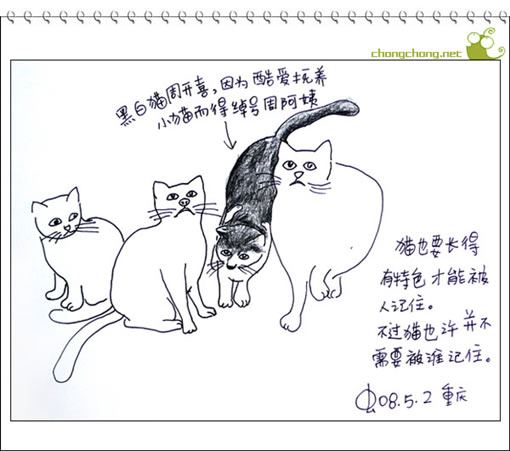 chongchong.net
黑白猫周开喜，因为酷爱抚养
小猫而得绰号周阿姨
猫也要长得
有特色才能被
人记住。
不过猫也许并不
需要被谁记住。
08.5.2 重庆